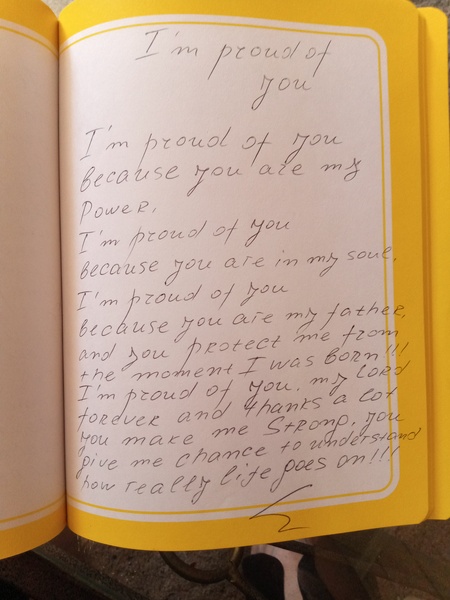 I'm proud of
you
I'm proud of you
because you are my
Power.
I'm proud of you
because you are in my soul.
I'm proud of you
because you are my father,
and you protect me from
the moment I was born!!!
I'm proud of you, my LORD
forever and thanks a lot
you make me strong, you
give me chance to understand
how really life goes on!!!